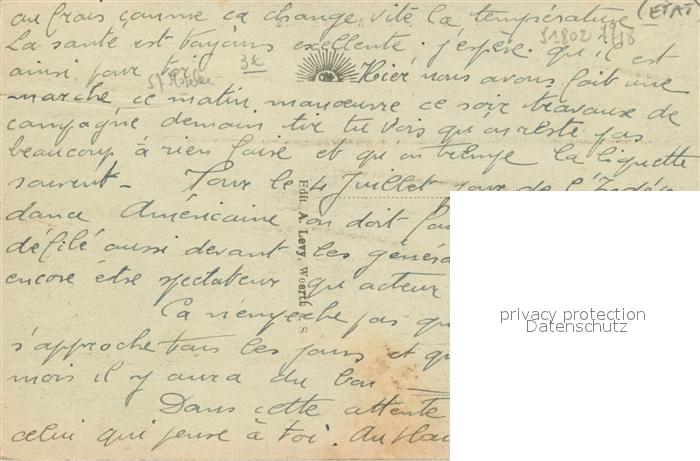 au frais comme ca change vite la température - (ETAT)
La santé est toujours excellente. j'espère qu'il est
51802 1/18
ainsi pour toi Hier nous avons fait une
3€
marche ce matin manœuvre ce soir travaux de
campagne demain tir tu vois qu'on reste pas
beaucoup à rien faire et qu'on la liquette
souvent - Pour le 4 Juillet jour de l'Indépen
dance Américaine on doit
défilé aussi devant les généra
encore être spectateur qu'acteur
Edit. A. Levy, Woerth s. S
Ca n'empeche pas qu
s'approche tous les jours et qu
mois il y aura du bon
Dans cette attente
celui qui pense à toi.
privacy protection
Datenschutz